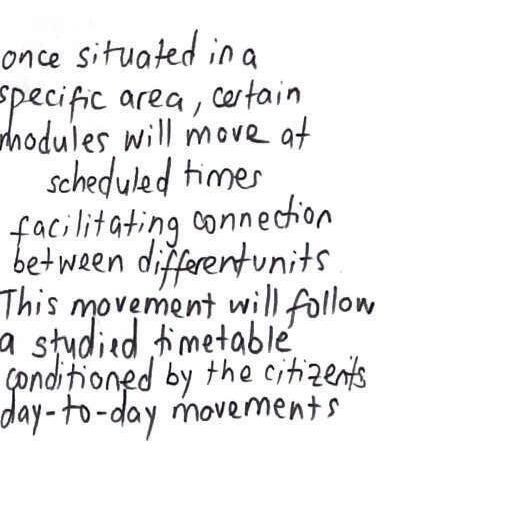 once situated in a
specific area, certain
modules will move at
scheduled times
facilitating connection
between different units
This movement will follow
a studied timetable
conditioned by the citizen's
day-to-day movements